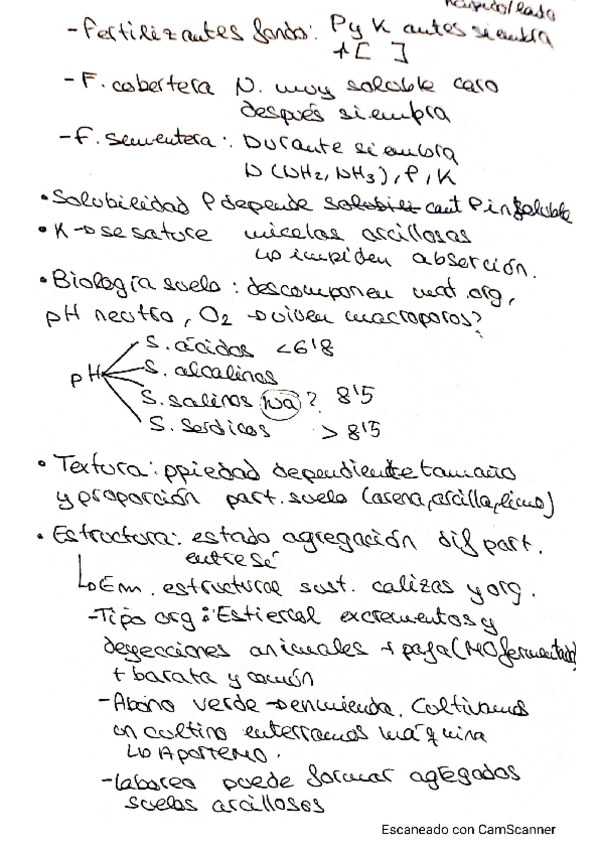 - Fertilizantes fondo: P y K antes siembra
+ [ ]
- F. cobertera N. muy soluble caro
después siembra
- F. sementera: Durante siembra
N (NH2, NH3), P, K
• Solubilidad P depende cant P insoluble
• K → se sature micelas arcillosas
↳ impiden absorción.
• Biología suelo: descomponen mat. org,
pH neutro, O2 → viven macroporos?
pH
S. ácidos < 6'8
S. alcalinos
S. salinos Na ? 8'5
S. sódicos > 8'5
• Textura: ppiedad dependiente tamaño
y proporción part. suelo (arena, arcilla, limo)
• Estructura: estado agregación dif part.
entre sí
↳ Em. estructural sust. calizas y org.
- Tipo org: Estiercol excrementos y
deyecciones animales + paja (MO fermentada)
+ barata y común
- Abono verde → enmienda. Cultivamos
un cultivo enterramos máquina
↳ Aporte MO.
- Laboreo puede formar agregados
suelos arcillosos
Escaneado con CamScanner